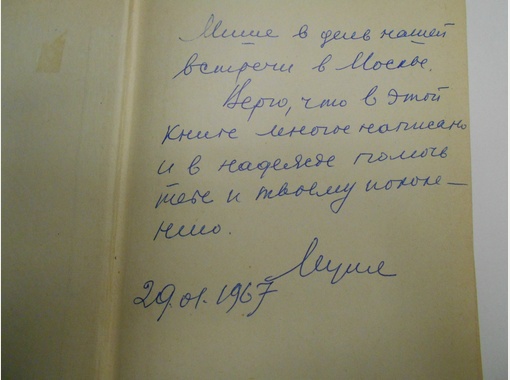 Мише в день нашей
встречи в Москве.
Верю, что в этой
книге многое написано
и в надежде помочь
тебе и твоему поколе-
нию.
29.01.1967